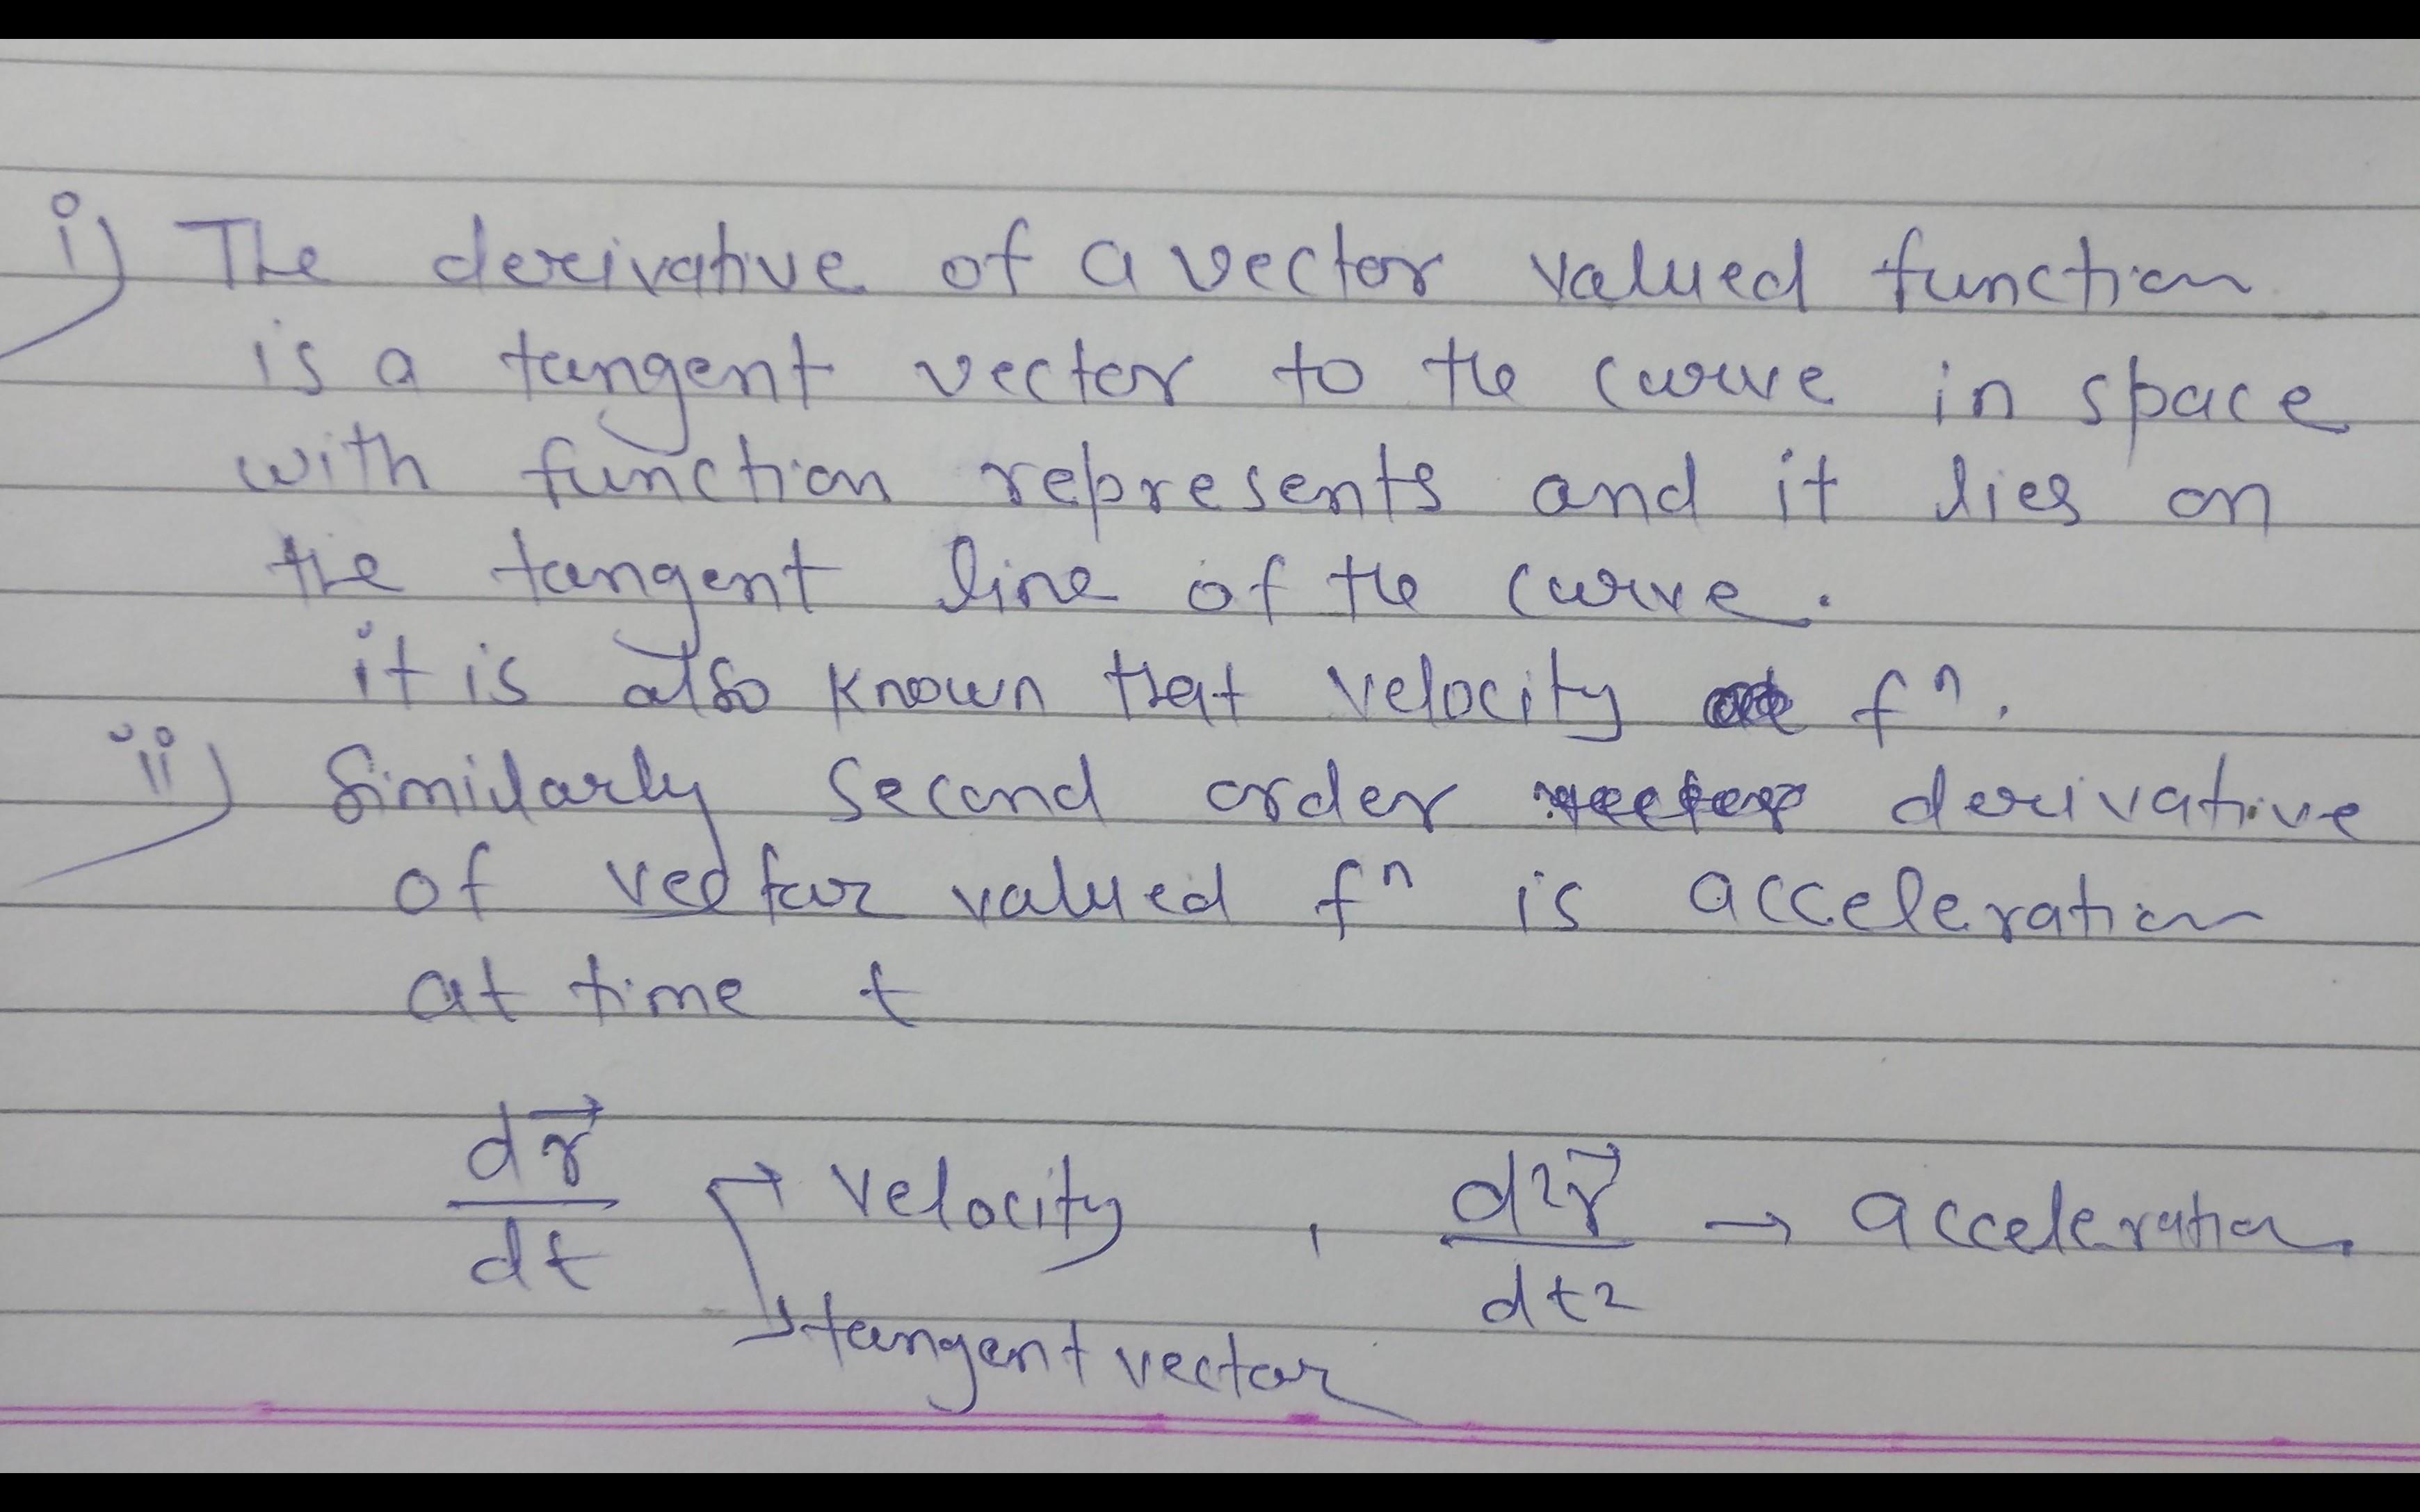 i) The derivative of a vector valued function
is a tangent vector to the curve in space
with function represents and it lies on
the tangent line of the curve.
it is also known that velocity fⁿ.
ii) Similarly second order vector derivative
of vector valued fⁿ is acceleration
at time t
dr⃗/dt → velocity → tangent vector , d²r⃗/dt² → acceleration.